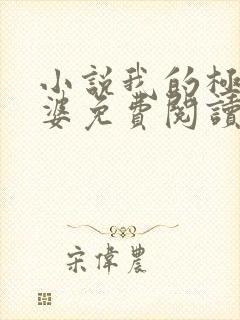 小説我的極
婆免費閱讀
宋偉農